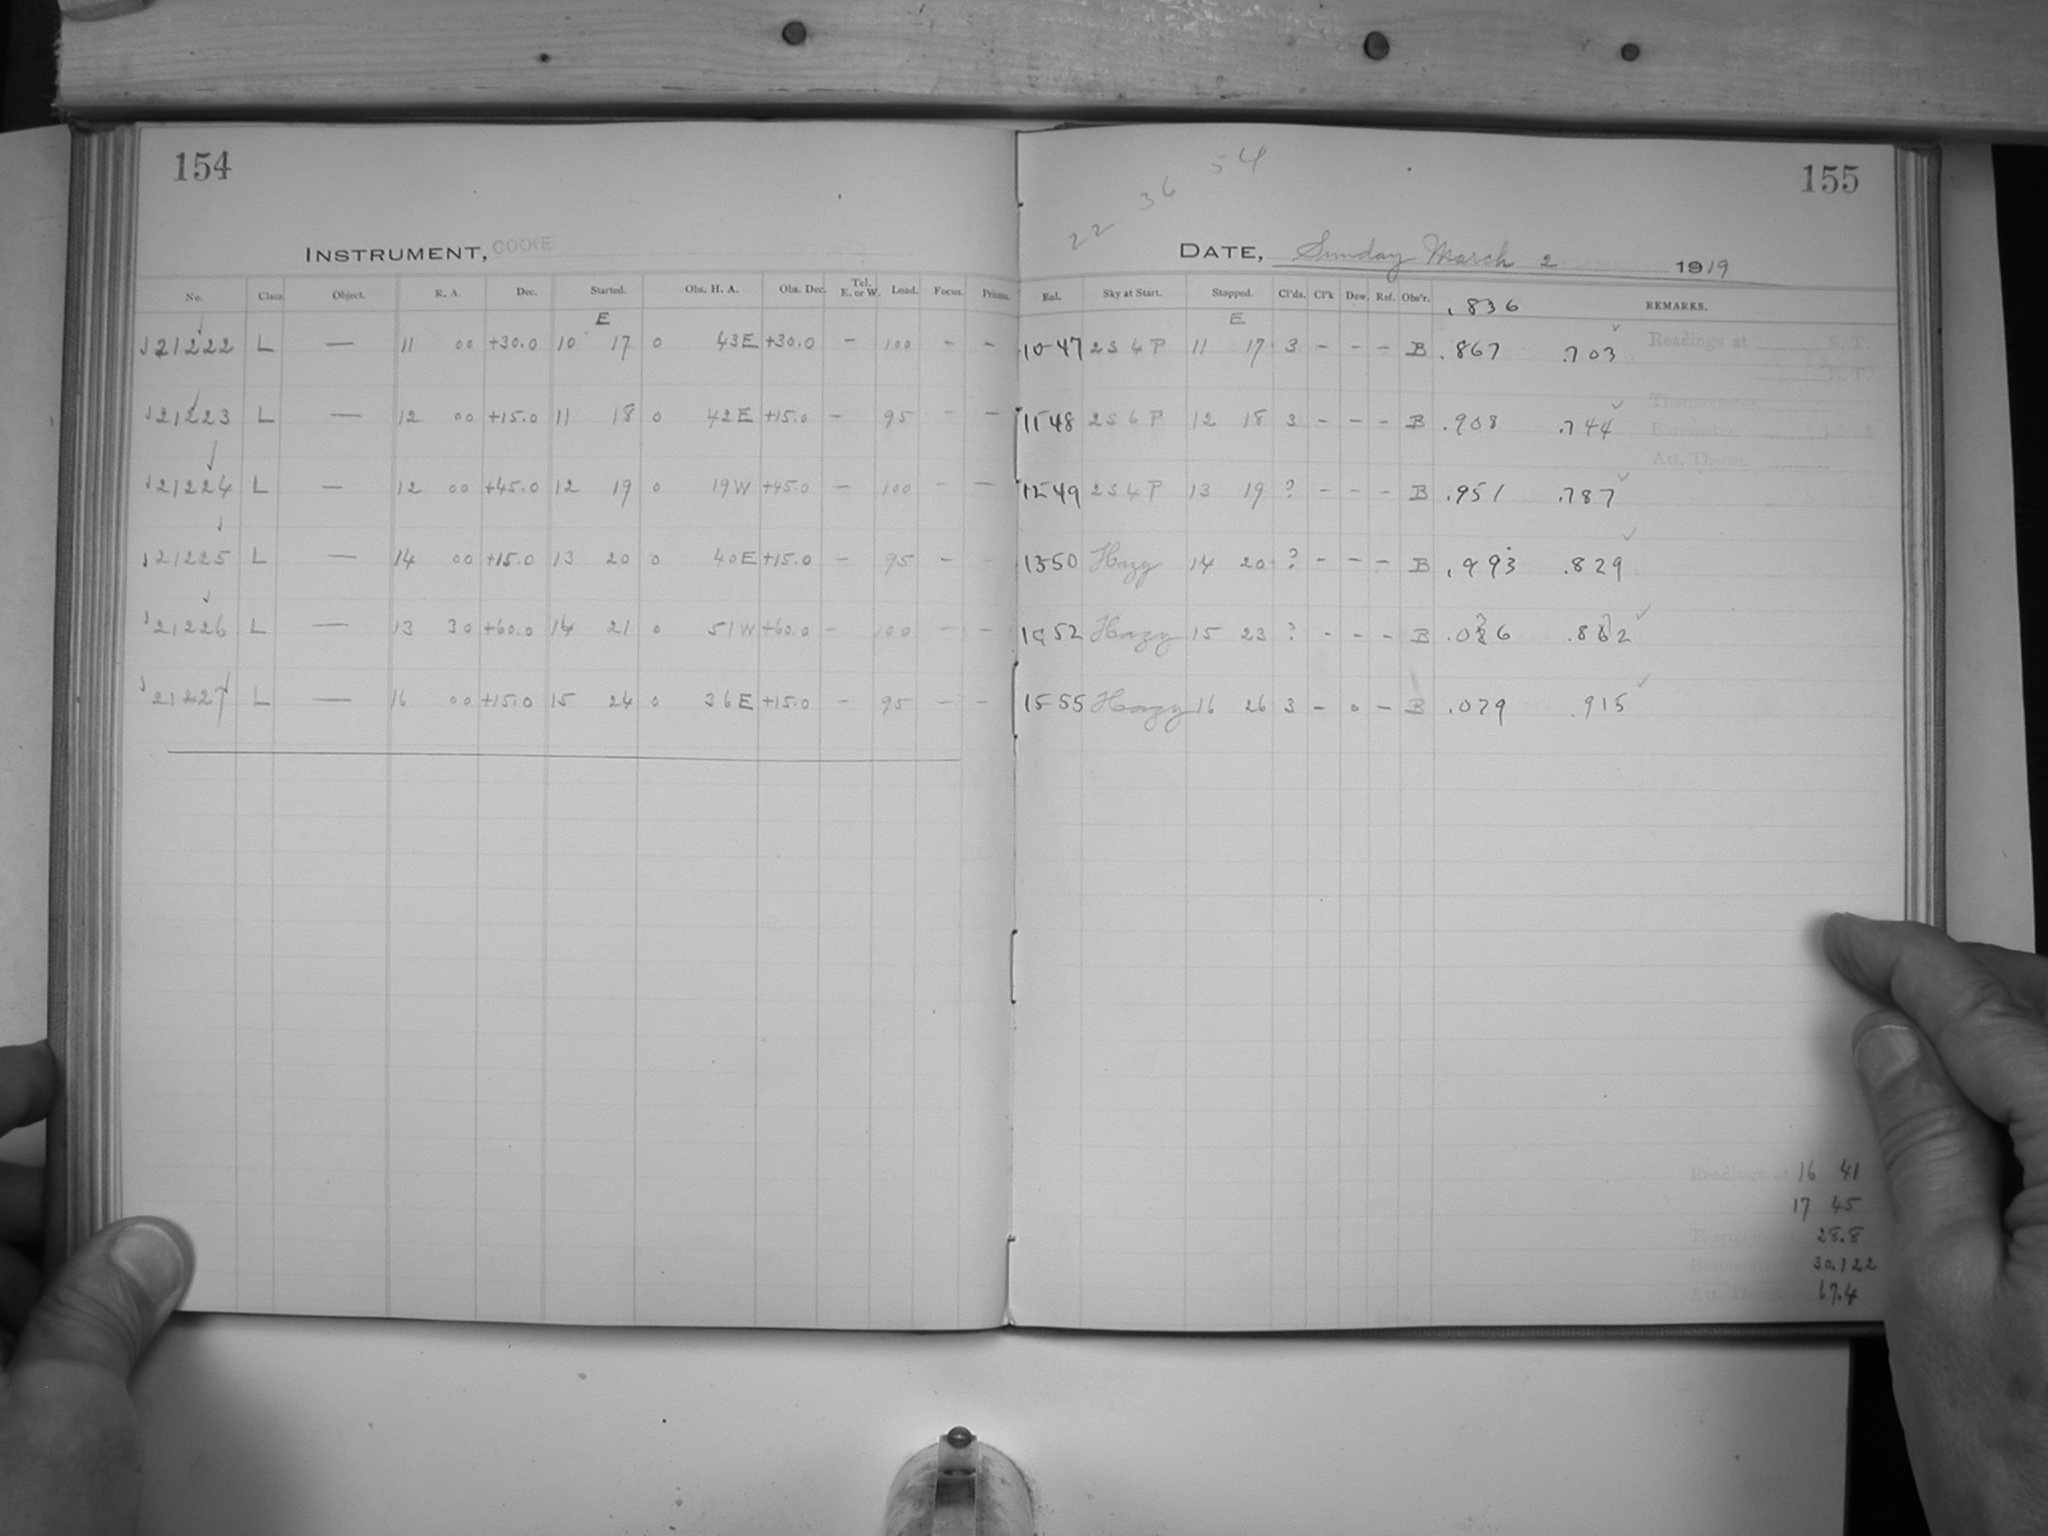 154
INSTRUMENT, COOKE
No. Class. Object. R. A. Dec. Started. Obs. H. A. Obs. Dec. Tel. E. or W. Load. Focus. Prisms.
E
21222 L — 11 00 +30.0 10 17 0 43E +30.0 - 100 - -
21223 L — 12 00 +15.0 11 18 0 42E +15.0 - 95 - -
21224 L — 12 00 +45.0 12 19 0 19W +45.0 - 100 - -
21225 L — 14 00 +15.0 13 20 0 40E +15.0 - 95 - -
21226 L — 13 30 +60.0 14 21 0 51W +60.0 - 100 - -
21227 L — 16 00 +15.0 15 24 0 36E +15.0 - 95 - -
155
22 36 54
DATE, Sunday March 2 1919
Sky at Start. Stopped. Cl'ds. Cl'k Dew. Ref. Obs'r. .836 REMARKS.
E
10-47 2S 4P 11 17 3 - - - B .867 .703 Readings at S. T.
E. T.
11-48 2S 6P 12 18 3 - - - B .908 .744 Thermometer
Barometer
Att. Therm.
12-49 2S 4P 13 19 ? - - - B .951 .787
13-50 Hazy 14 20 ? - - - B .993 .829
52 Hazy 15 23 ? - - - B
15-55 Hazy 16 26 3 - 0 - B .079 .915
Readings at 16 41
17 45
28.8
30.122
67.4